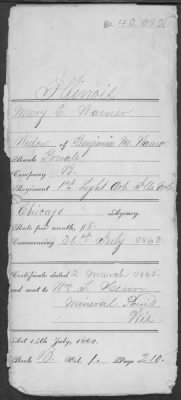 No. 42,092
Illinois
Mary E. Warner
Widow of Benjamin M. Warner
Rank Private
Company B.
Regiment 1st Light Art. Ills Vols
Chicago Agency.
Rate per month, $8.
Commencing 31st July 1863.
Certificate dated 2 March 1865.
and sent to Wm T. Henry
Mineral Point
Wis
Act 14th July, 1862.
Book B. Vol. 1. Page 210.